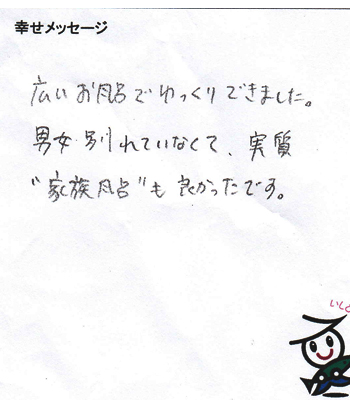 幸せメッセージ
広いお風呂でゆっくりできました。
男女別れていなくて、実質
"家族風呂"も良かったです。